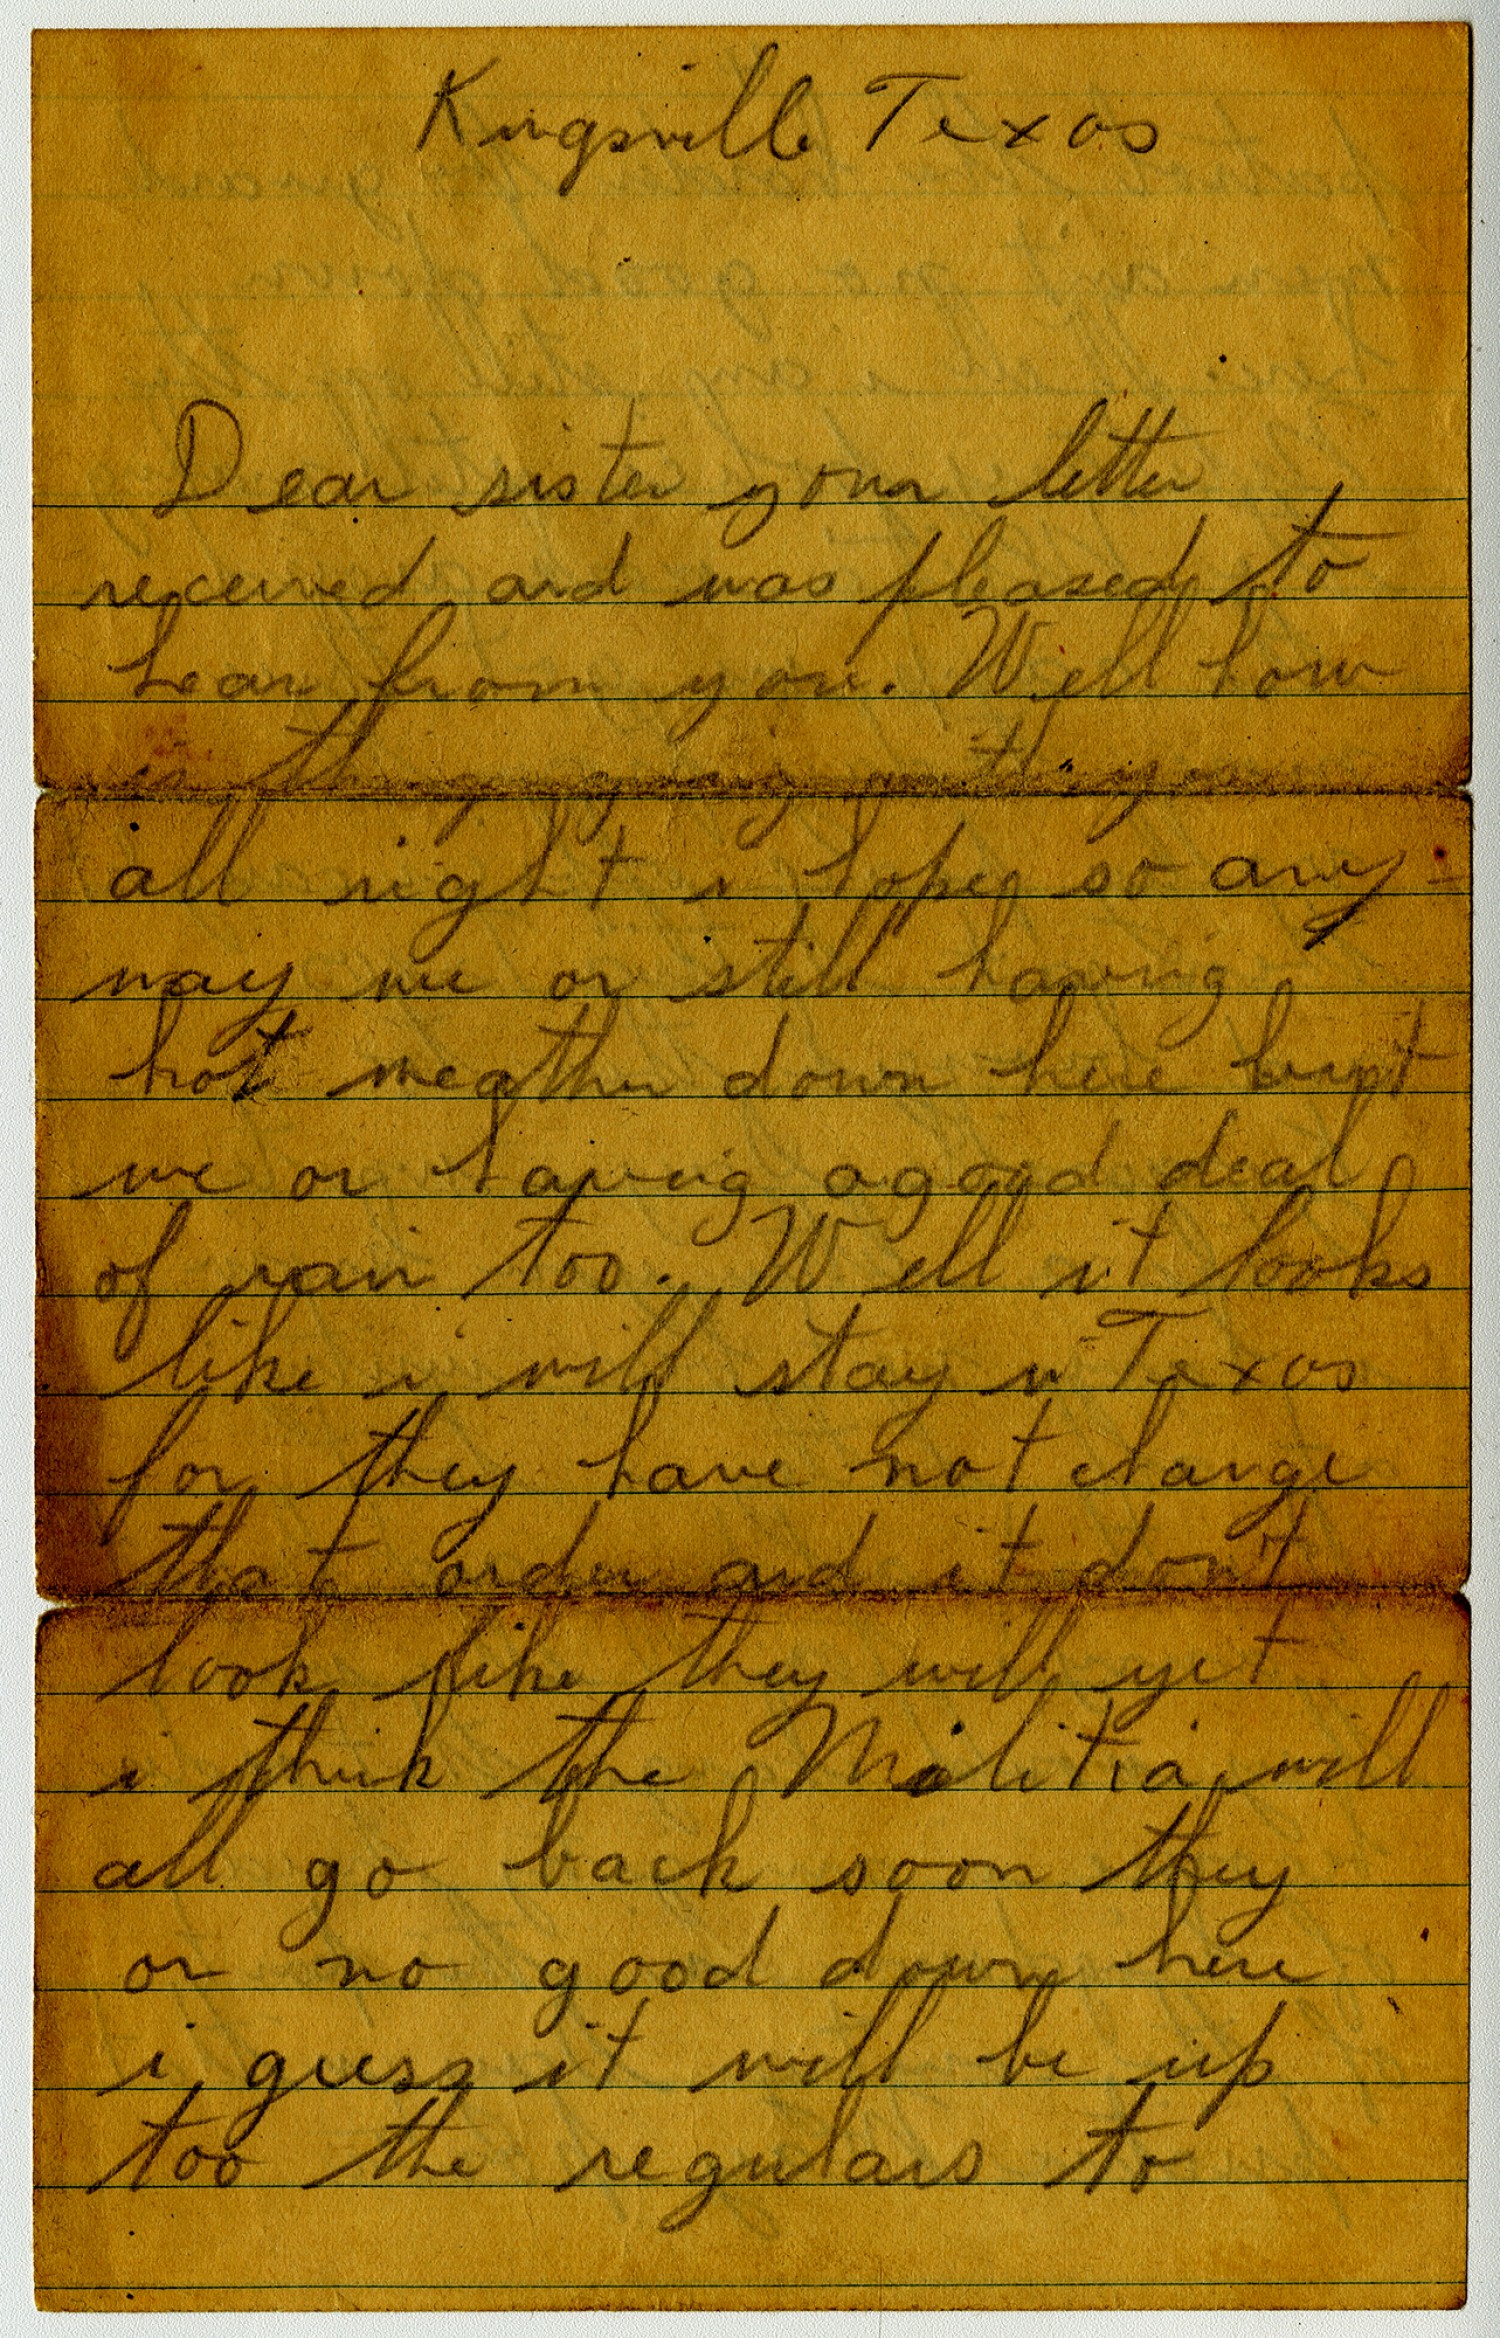 Kingsville Texas
Dear sister your letter
received and was pleased to
hear from you. Well how
is things going with you
all right i hope so any
way we or still having
hot weather down here but
we or having a good deal
of rain too. Well it looks
like i will stay in Texas
for they have not change
that order and it don't
look like they will yet
i think the Militia will
all go back soon they
or no good down here
i guess it will be up
too the regulars to